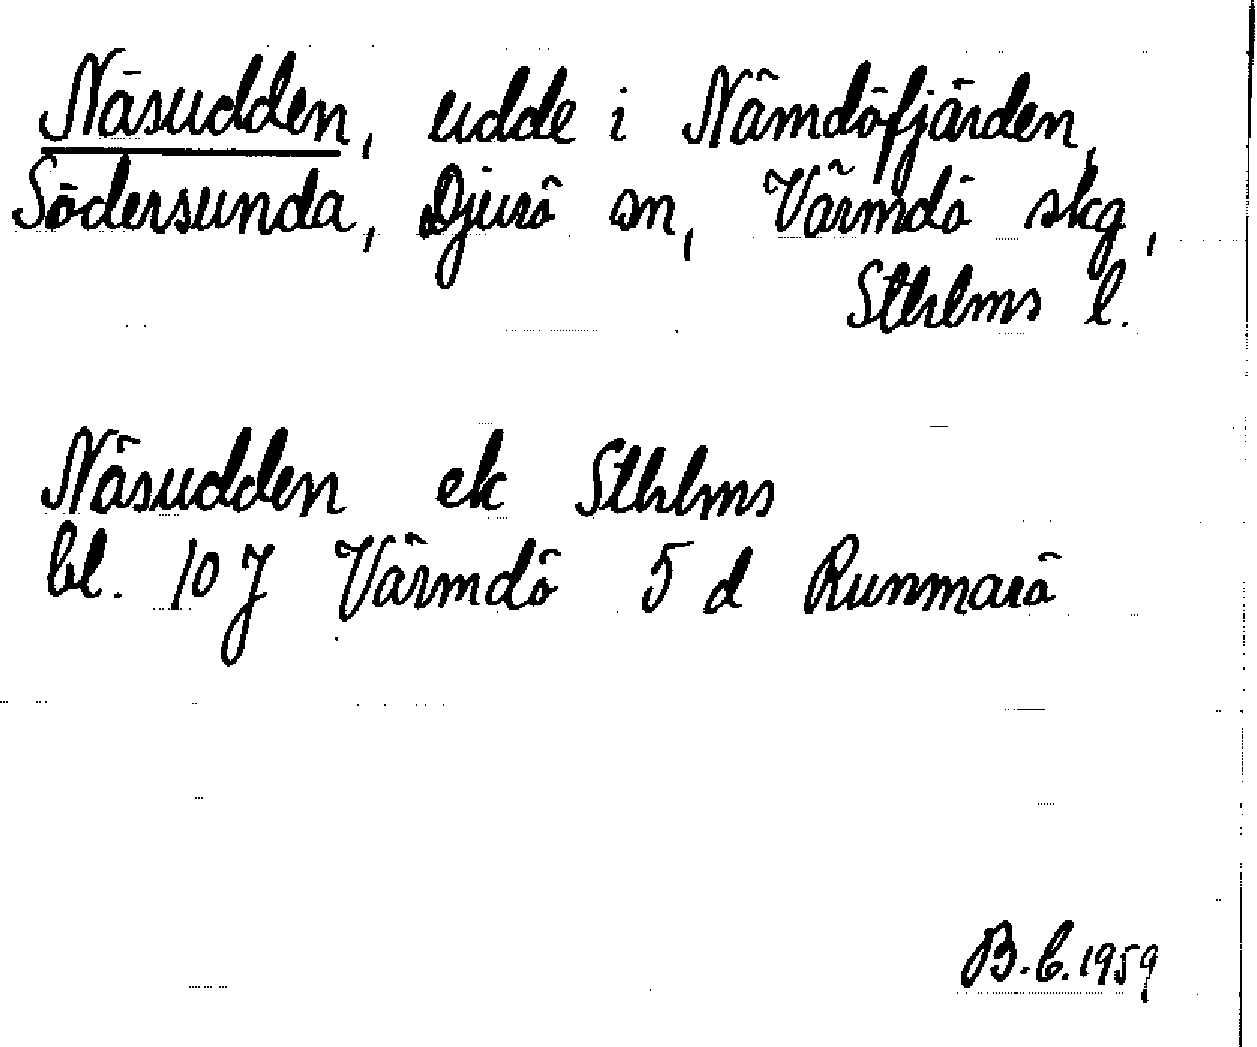 Näsudden, udde i Nämdöfjärden,
Södersunda, Djurö sn, Värmdö skg,
Sthlms l.
Näsudden ek Sthlms
bl. 10 J Värmdö 5 d Runmarö
B.C. 1959